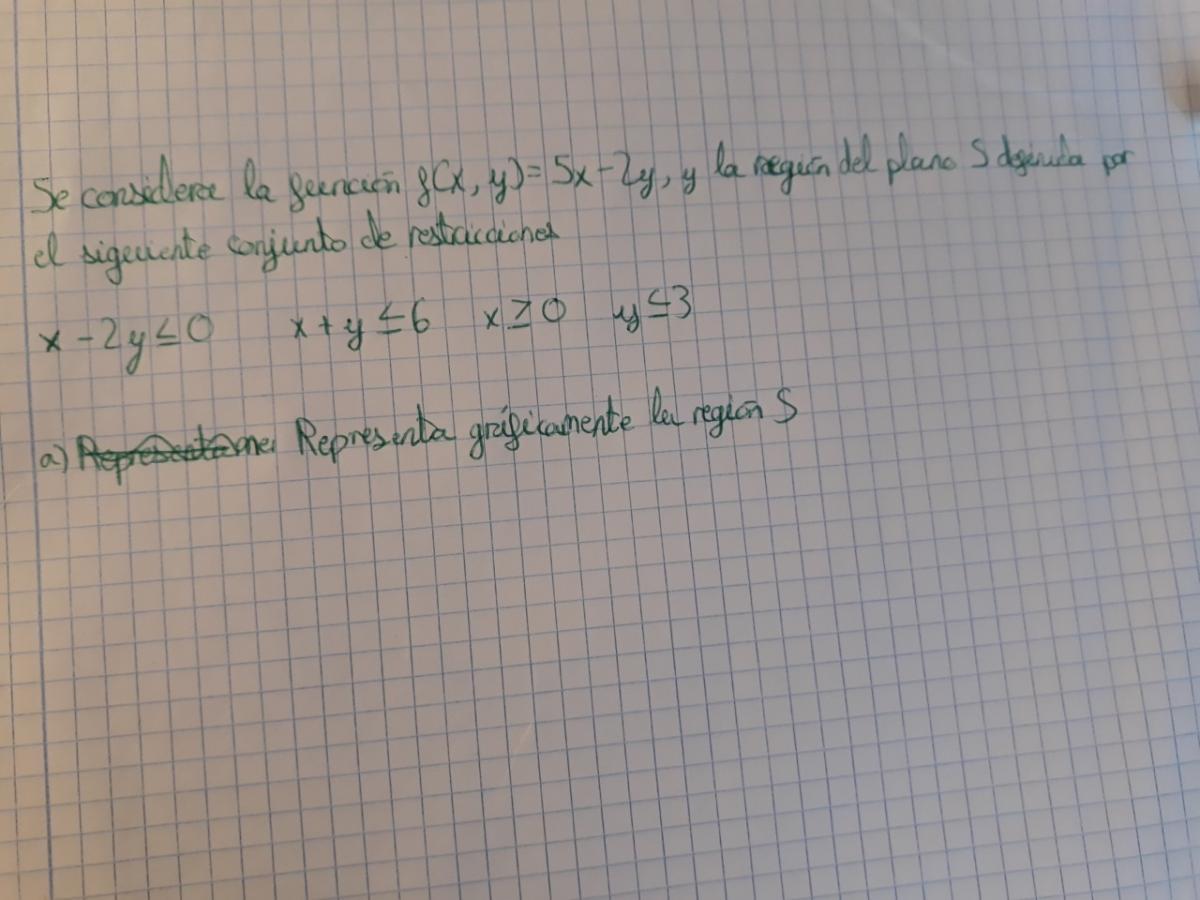 Se considera la función f(x, y) = 5x - 2y, y la región del plano S definida por
el siguiente conjunto de restricciones
x - 2y ≤ 0 x + y ≤ 6 x ≥ 0 y ≤ 3
a) Representa gráficamente la región S